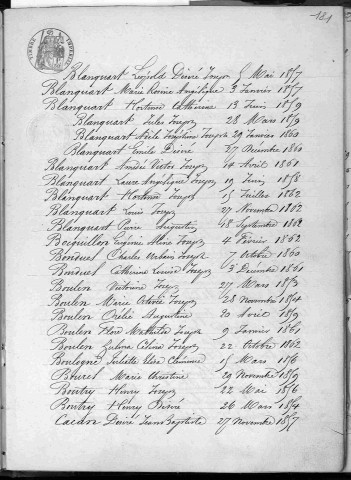 121
Blanquart Léopold Désiré Joseph 5 Mai 1857
Blanquart Marie Rosine Angélique 3 Janvier 1857
Blanquart Hortense Catherine 13 Juin 1859
Blanquart Jules Joseph 28 Mars 1859
Blanquart Adèle Joséphine Joseph 29 Janvier 1860
Blanquart Emile Désiré 27 Décembre 1860
Blanquart André Victor Joseph 14 Avril 1861
Blanquart Laure Angélique Joseph 19 Juin 1858
Blanquart Hortense Joseph 15 Juillet 1862
Blanquart Louis Joseph 27 Novembre 1862
Blanquart Pierre Augustin 18 Septembre 1862
Bocquillon Eugénie Joseph 4 Février 1862
Bonduel Charles Urbain Joseph 7 Octobre 1860
Bonduel Catherine Louise Joseph 3 Décembre 1861
Boulen Victoire Joseph 27 Mars 1853
Boulen Marie Octavie Joseph 28 Novembre 1854
Boulen Orélie Augustine 20 Avril 1859
Boulon Flore Mathilde Joseph 9 Janvier 1861
Boulon Zulma Céline Joseph 22 Octobre 1862
Boulogne Juliette Clémence 15 Mars 1856
Bourel Marie Christine 29 Novembre 1859
Boutry Henry Joseph 22 Mai 1856
Boutry Henry Désiré 26 Mars 1854
Caedan Désiré Jean Baptiste 27 Novembre 1857